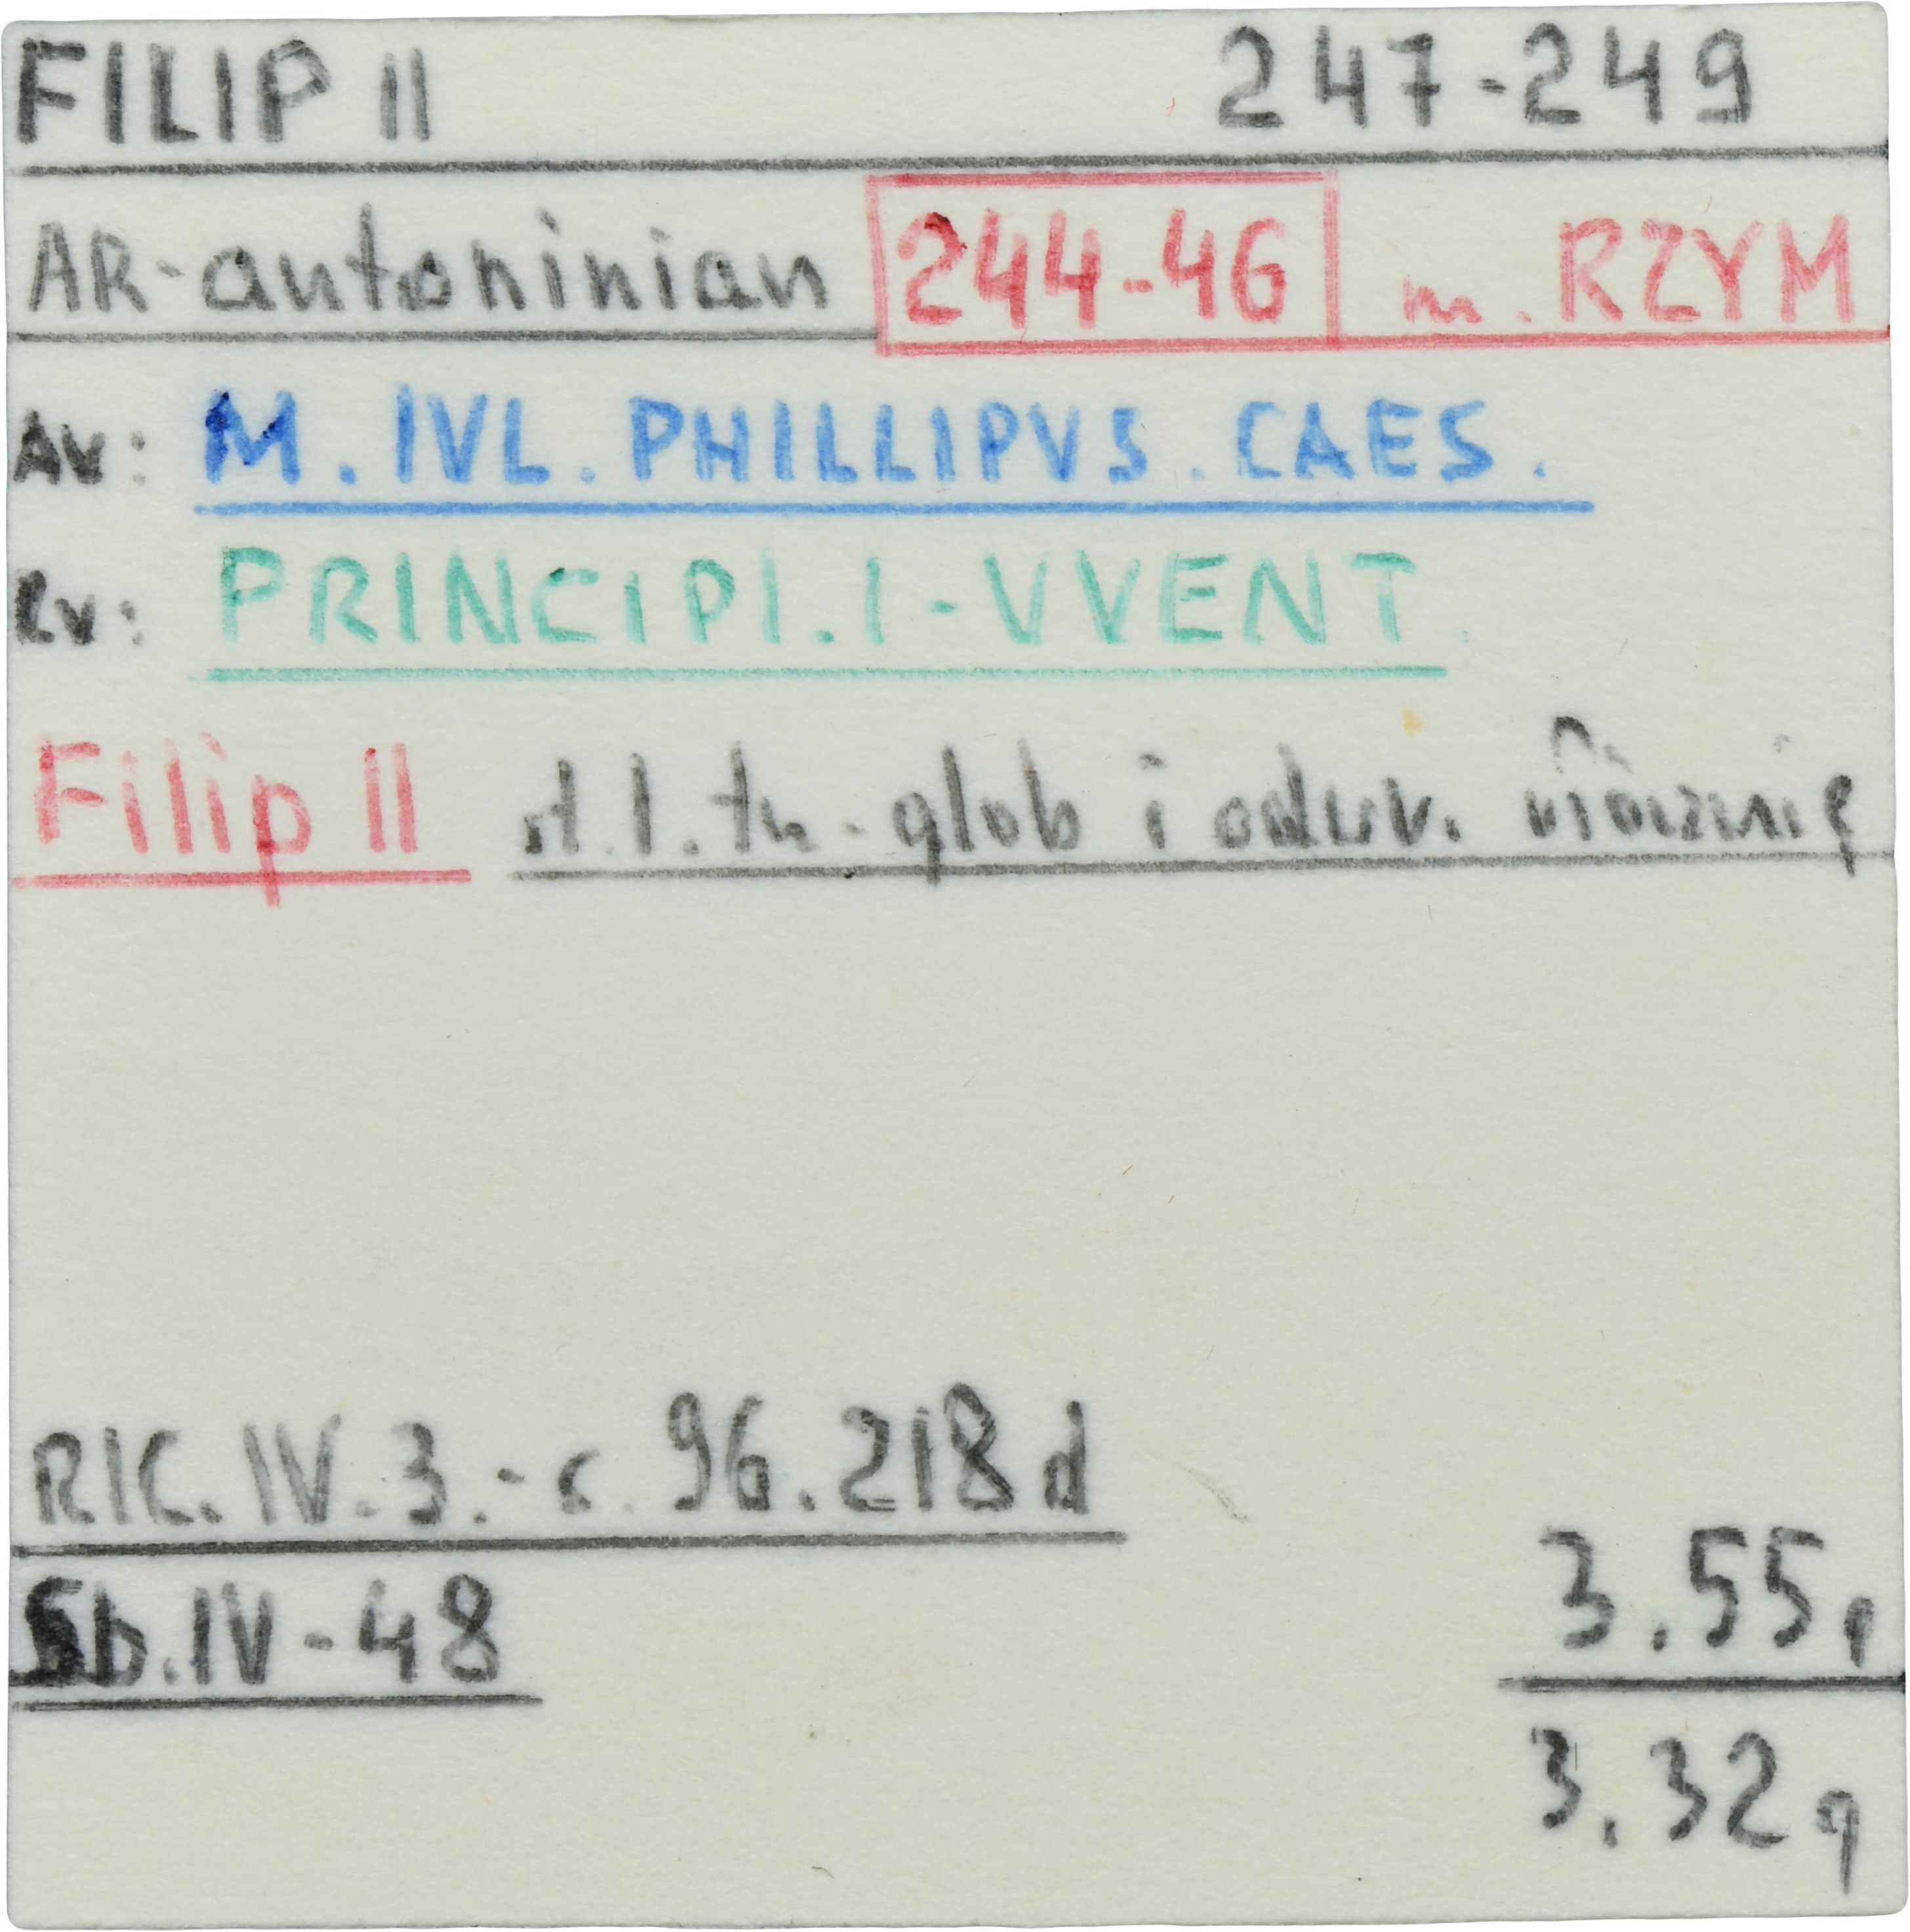 FILIP II 247-249
AR-antoninian 244-46 m. RZYM
Av: M. IVL. PHILLIPVS. CAES.
Rv: PRINCIPI. I-VVENT.
Filip II st. l. tn. glob i odwr. włócznię
RIC. IV. 3.- c. 96. 218 d
Sb. IV-48 3.55g
3,32g